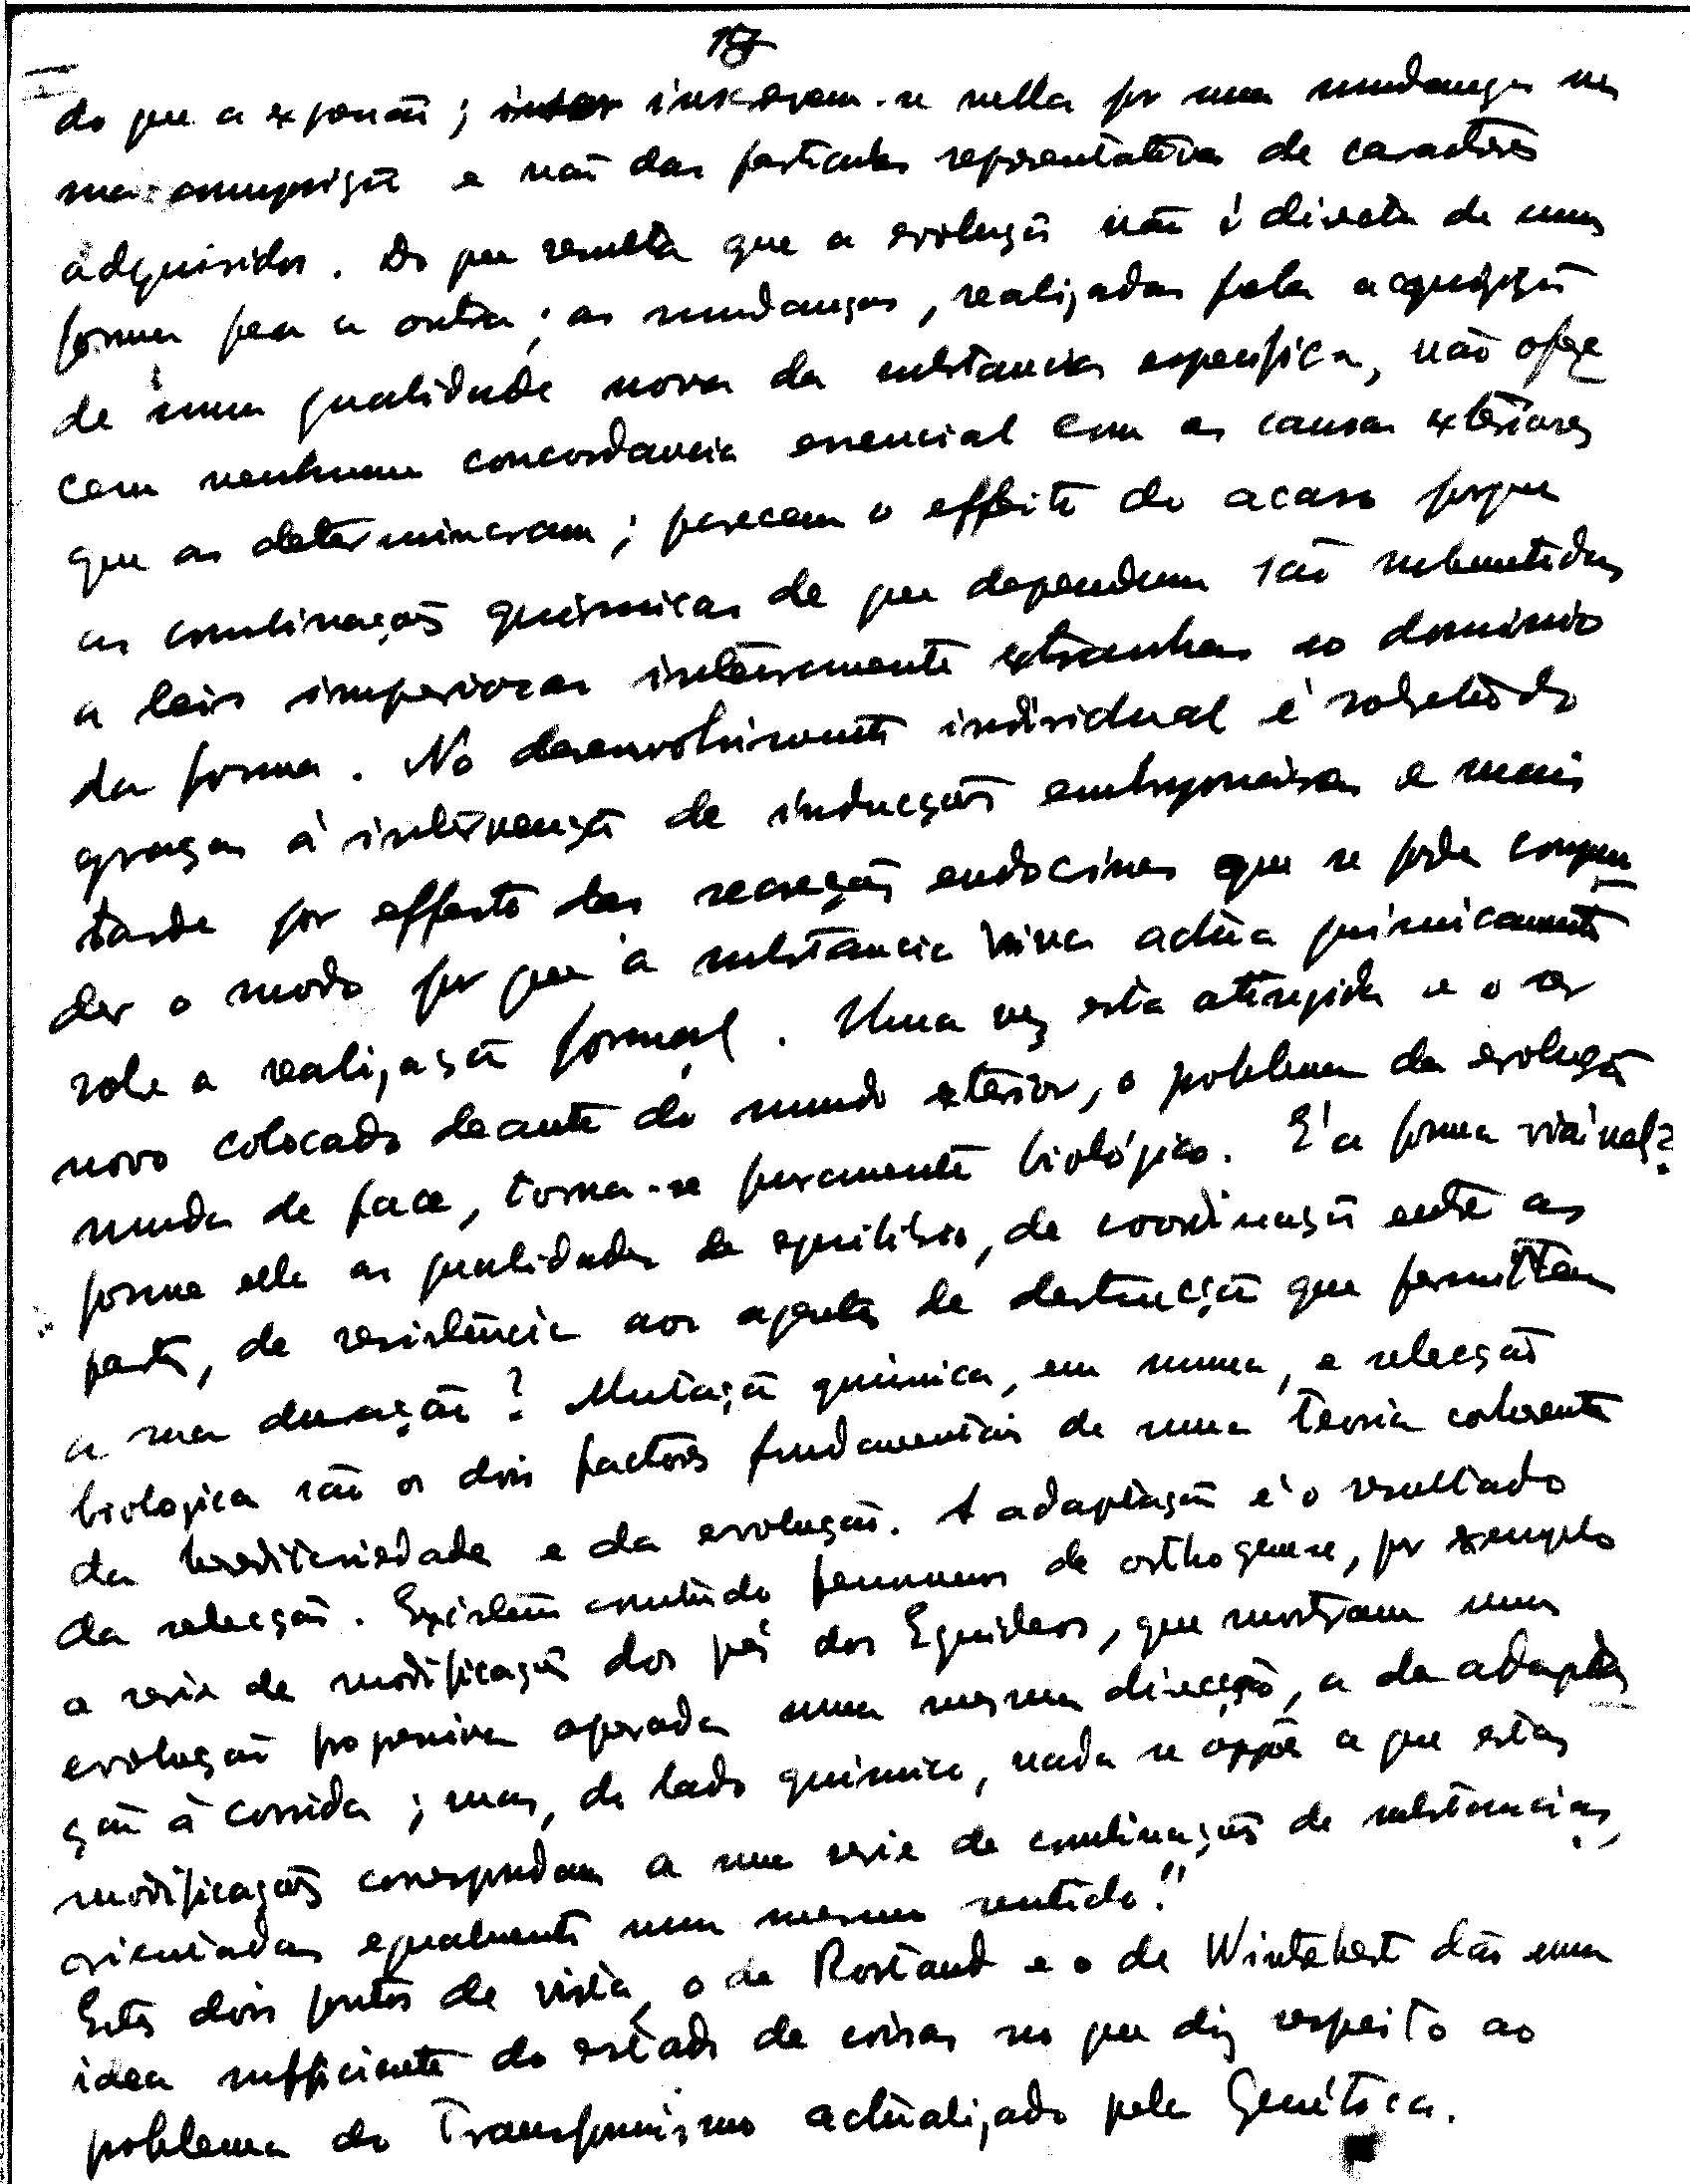 do que a expansão; inscrevem-se nella por uma mudança na
sua composição e não das particulas representativas de caracteres
adquiridos. Do que resulta que a evolução não é directa de uma
forma para a outra; as mudanças, realizadas pela acquisição
de uma qualidade nova da substancia especifica, não ofere
cem nenhuma concordancia essencial com as causas exteriores
que as determinaram; parecem o effeito do acaso porque
as combinações quimicas de que dependem são submetidas
a leis imperiosas inteiramente extranhas ao dominio
da forma. No desenvolvimento individual é sobretudo
graças á intervenção de inducções embryonaisas e mais
tarde por effeito das secreções endocrinas que se pode compreen
der o modo por que a substancia viva actúa quimicamente
sobre a realização formal. Uma vez esta atingida e o ser
novo colocado deante do mundo exterior, o problema da evolução
muda de face, torna-se puramente biológico. É a forma viavel?
possue ella as qualidades de equilibrio, de coordinação entre as
partes, de resistencia aos agentes de destruição que permittam
a sua duração? Mutação quimica, em summa, e selecção
biologica são os dois factores fundamentais de uma teoria coherente
da hereditariedade e da evolução. A adaptação é o resultado
da selecção. Existem contudo fenomenos de orthogenese, por exemplo
a serie de modificações dos pés dos Equideos, que mostram uma
evolução progressiva operada numa mesma direcção, a da adapta
ção á corrida; mas, do lado quimico, nada se oppõe a que estas
modificações correspondam a uma serie de combinações de substancias,
orientadas egualmente num mesmo sentido."
Estes dois pontos de vista, o de Rostand e o de Wintrebert dão uma
idea sufficiente do estado de coisas no que diz respeito ao
problema do Transformismo actualizado pela Genética.